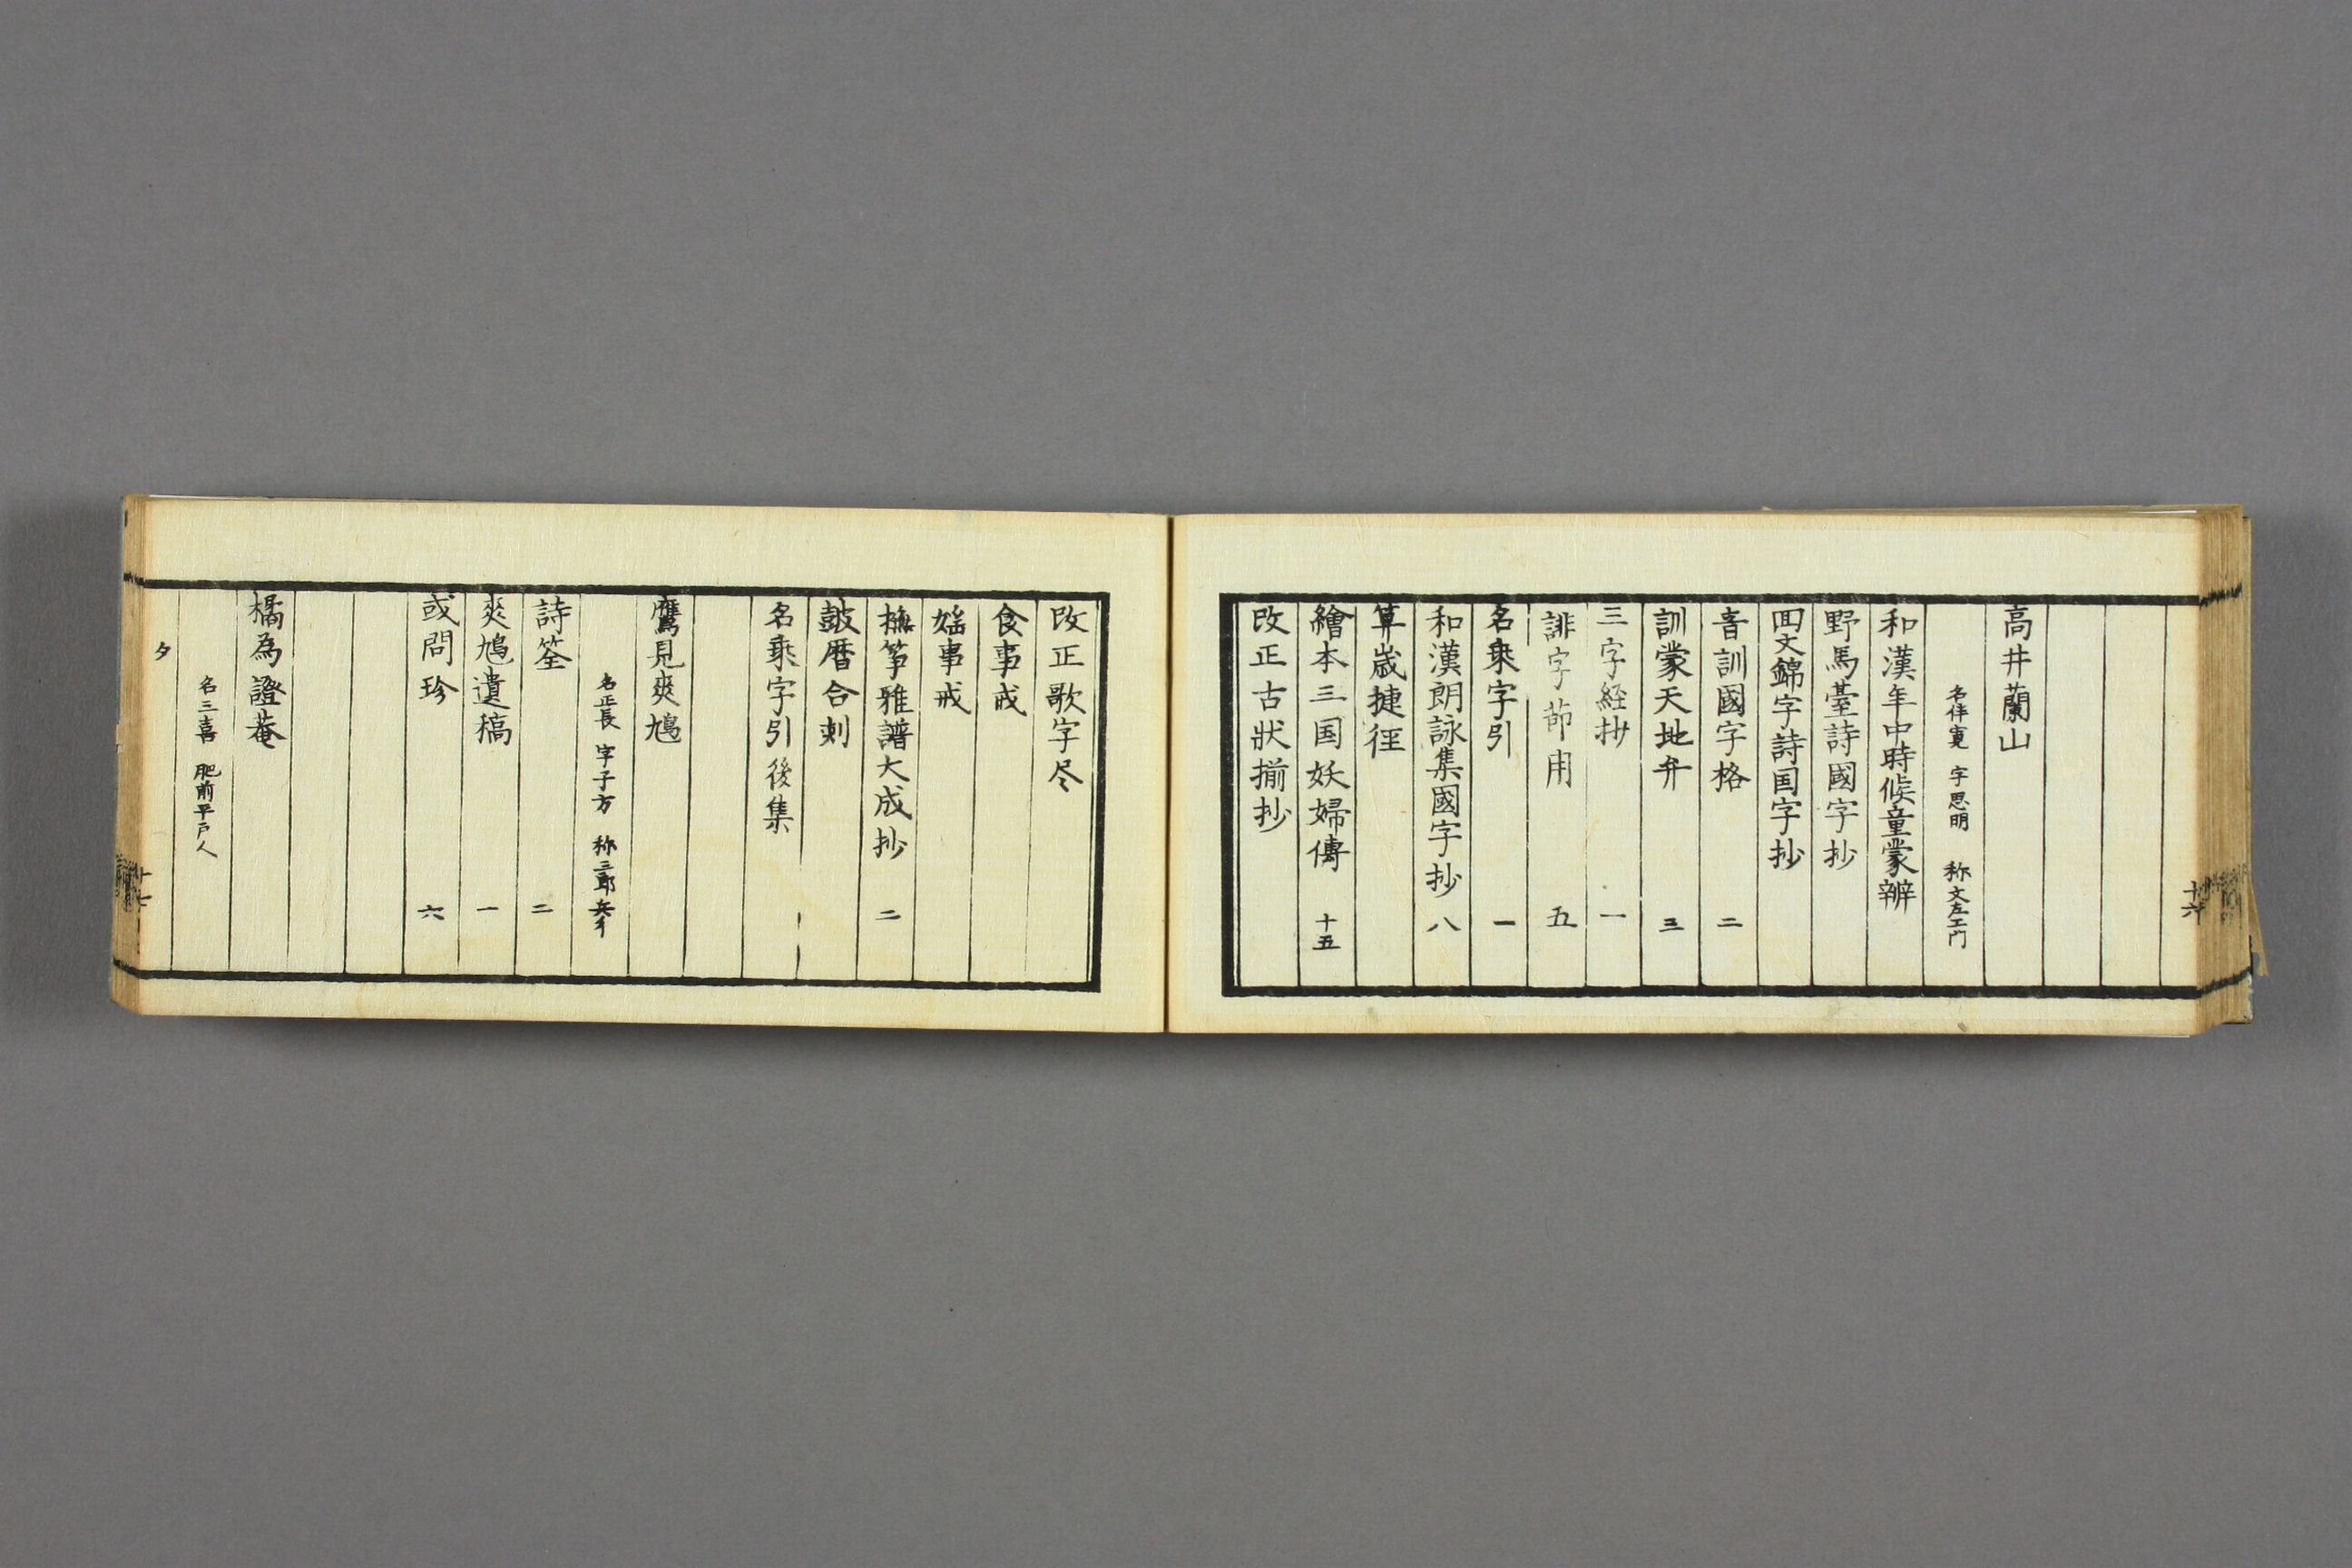 十六
高井蘭山
名伴寛 字思明 称文左エ門
和漢年中時候童蒙辨
野馬臺詩國字抄
回文錦字詩国字抄
音訓國字格 二
訓蒙天地弁 三
三字経抄 一
誹字節用 五
名乗字引 一
和漢朗詠集國字抄 八
算歳捷徑
繪本三国妖婦傳 十五
改正古狀揃抄
改正歌字尽
食事戒
婬事戒
撫箏雅譜大成抄 二
皷暦合刺
名乗字引後集
鷹見爽鳩
名正長 字子方 称三郎兵衛
詩筌 二
爽鳩遺稿 一
或問珍 六
橘為證菴
名三喜 肥前平戸人
タ
十七